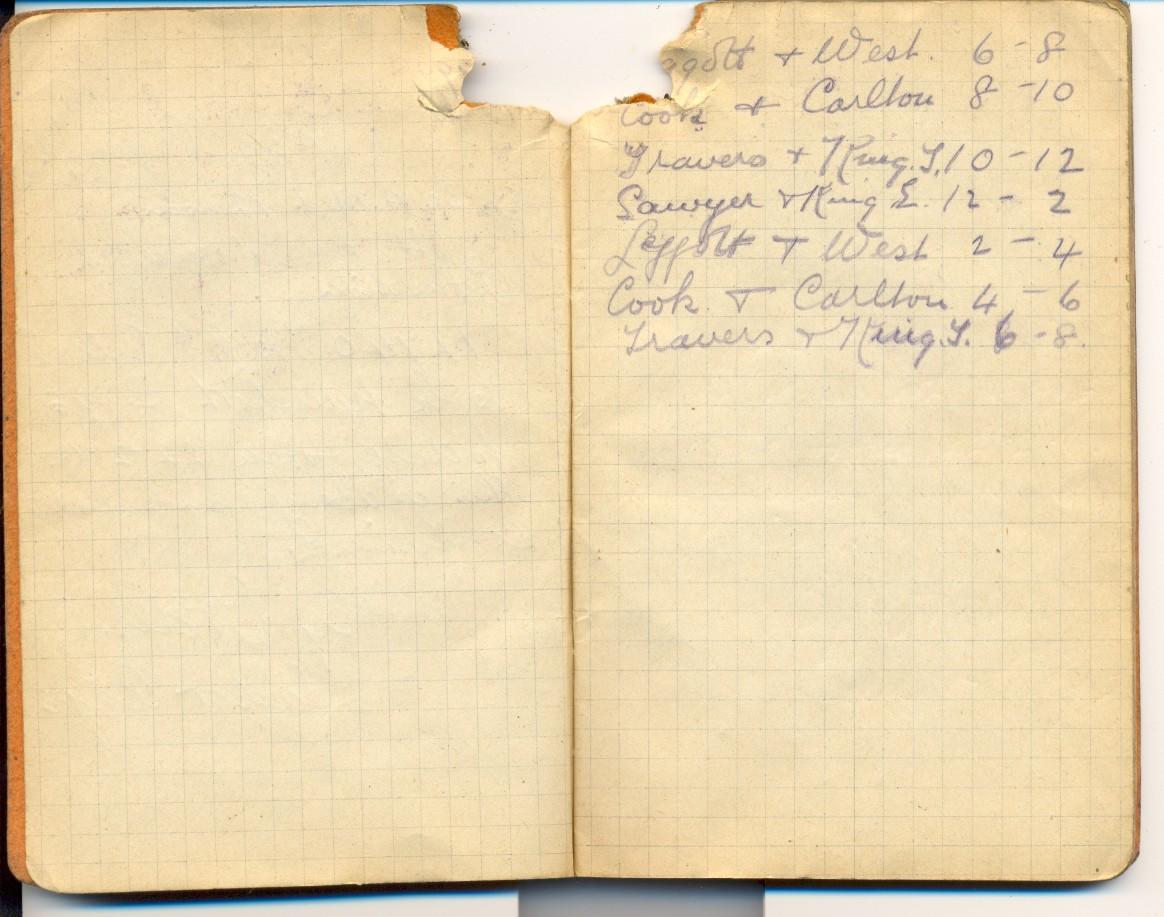 ggott + West. 6 - 8
Cook + Carlton 8 - 10
Travers + King. T. 10 - 12
Sawyer + King E. 12 - 2
Leggott + West 2 - 4
Cook + Carlton 4 - 6
Travers + King. T. 6 - 8.